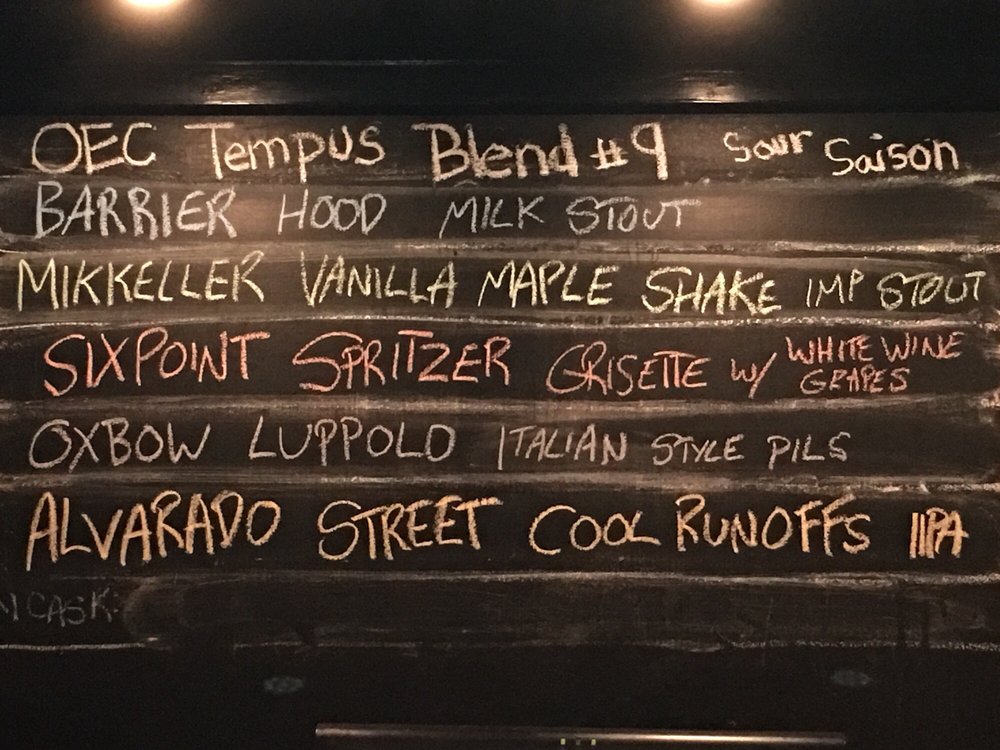 OEC Tempus Blend #9 Sour Saison
BARRIER HOOD MILK STOUT
MIKKELLER VANILLA MAPLE SHAKE IMP STOUT
SIXPOINT SPRITZER GRISETTE W/ WHITE WINE GRAPES
OXBOW LUPPOLO ITALIAN STYLE PILS
ALVARADO STREET COOL RUNOFFS IIPA
CASK: